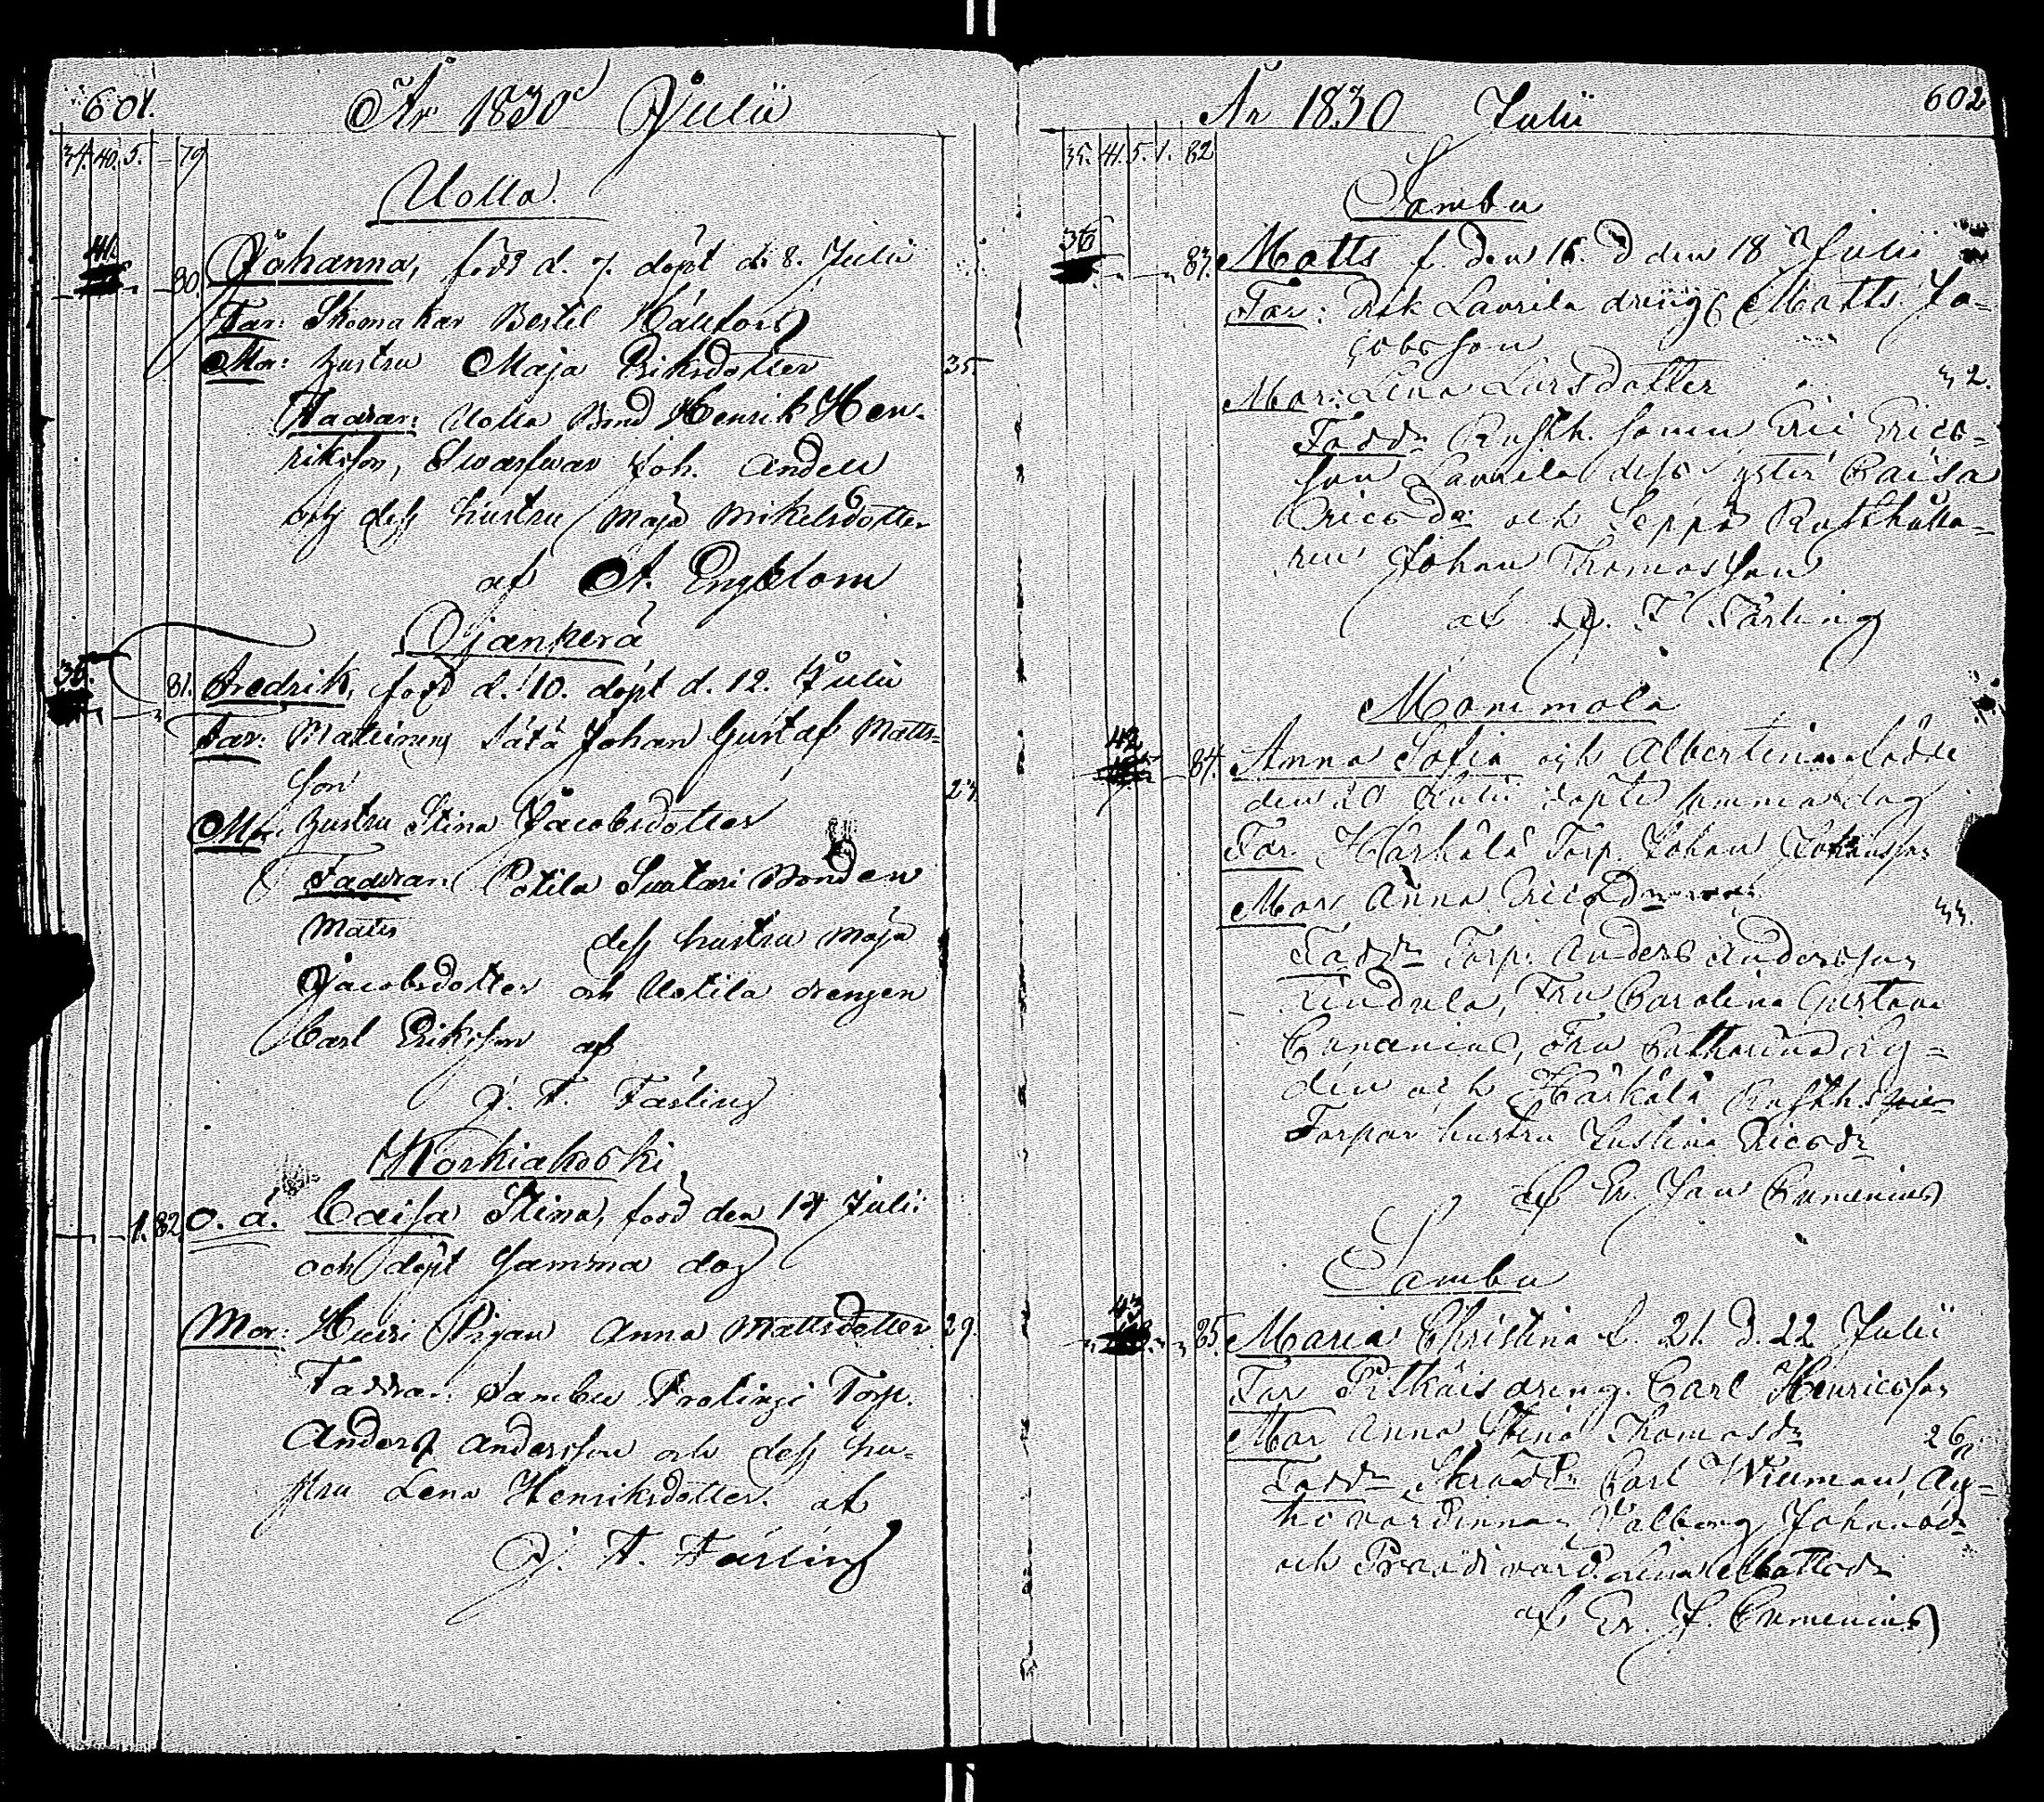 601.
År 1830 Julii
34. 40. 5. - 79
Uolla.
41.
80. Johanna, född d. 7. döpt d. 8. Julii
Far: Skomakar Bertil Hällfors
Mor: hustru Maja Eriksdotter 35.
Faddrar: Uolla Bond Henrik Hen-
riksson, Swarfwar Joh. Andell
och dess hustru Maja Mikelsdotter
af A. Engblom
Ojanperä
35.
81. Fredrik, född d. 10. döpt d. 12. Julii
Far: Johan Gustaf Matts-
son 27.
Mor: hustru Stina Jacobsdotter
Faddrar: Potila Suutari Bonden
Matts dess hustru Maja
Jacobsdotter och Uotila drengen
Carl Eriksson af
J. F. Färling
Korkiakoski
1. 82 o. ä. Caisa Stina, född den 14 Julii
och döpt samma dag
Mor: Hurri Pigan Anna Mattsdotter 29.
Faddrar: Sambu Torp.
Anders Andersson och dess hu-
stru Lena Henriksdotter. af
J. F. Färling
602
År 1830 Julii
35. 41. 5. 1. 82
Sambu
36
83. Matts f. den 16. d den 18 Julii
Far: Laurila dräng Matts Ja-
cobsson
Mor: Lena Larsdotter 32.
Fadd. Rusth. sonen Eric Erics-
son Laurila dess syster Caisa
Ericsdr och Seppä Rusthålla-
ren Johan Thomasson
af J. F. Färling
Mommola
42
84. Anna Sofia och Albertina födde
den 20 Julii döpte samma dag
Far. Härkälä Torp. Johan Johansson
Mor Anna Ericsdr 33.
Fadd. Torp. Anders Andersson
Lindula, Fru Carolina Gustava
Cumenius, Fru Catharina Ly-
den och Härkälä Rusth.
Torpar hustru Justina Ericsdr
af Er. Joh. Cumenius
Sambu
43
85. Maria Christina f. 21. d. 22 Julii
Far Pitkäis dräng. Carl Henricsson
Mor Anna Stina Thomasdr 26
Fadd. Skrädd. Carl Wiuman, Äy-
hö värdinnan Valborg Johansdr
och Prassi värd. Lena Mattsdr
af Er. J. Cumenius